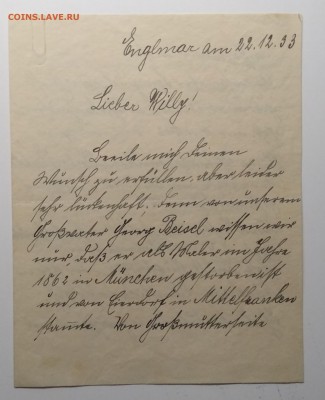 COINS.LAVE.RU
Englmar am 22.12.33
Lieber Willy!
Beeile mich Deinen
Wunsch zu erfüllen. aber leider
sehr lückenhaft. Denn von unserem
Großvater Georg Beisel wissen wir
nur, daß er als Maler im Jahre
1862 in München gestorben ist
und von in Mittelfranken
stamte. Von Großmutterseite